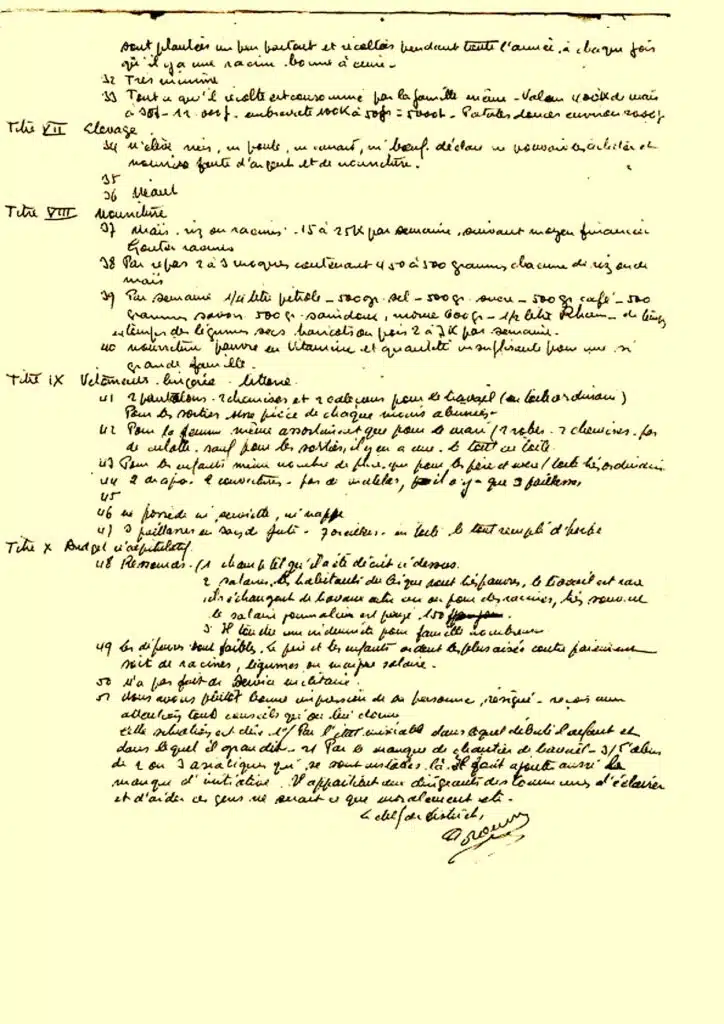 sont plantées un peu partout et récoltés pendant toute l'année, à chaque fois
qu'il y a une racine bonne à cuire -
32 Très minime
33 Tout ce qu'il récolte est consommé par la famille même - Valeur 400K de maïs
à 30f - 12.000f. 100K à 50frs = 5000f - Patates douces environ 2000f
Titre VII Elevage
34 n'élève rien, ni poule, ni canard, ni bœuf. déclare ne pouvoir en acheter et
nourrir faute d'argent et de nourriture.
35
36 Néant
Titre VIII Nourriture
37 Maïs - riz ou racines - 15 à 25K par semaine, suivant moyen financier
Gouter racines
38 Par repas 2 à 3 moques contenant 450 à 500 grammes chacune de riz ou de
maïs
39 Par semaine 1/4 litre pétrole - 500gr sel - 500gr sucre - 500gr café - 500
grammes savon 500gr saindoux, morue 600gr - 1/2 litre Rhum - de temps
en temps des légumes secs haricots ou pois 2 à 3K par semaine.
40 nourriture pauvre en vitamine et quantité insuffisante pour une si
grande famille.
Titre IX Vêtements - lingerie - literie
41 2 pantalons - 2 chemises et 2 caleçons pour le travail (en toile ordinaire)
Pour les sorties une pièce de chaque moins abîmées -
42 Pour la femme même assortiment que pour le mari / 2 robes - 2 chemises - pas
de culotte, sauf pour les sorties, il y en a une - le tout en toile
43 Pour les enfants même nombre de pièce que pour les père et mère / toile très ordinaire
44 2 draps - 2 couvertures - pas de matelas, il n'y a que 3 paillasses
45
46 ne possède ni serviette, ni nappe
47 3 paillasses en sacs de jute - 7 oreillers - en toile le tout rempli d'herbe
Titre X Budget récapitulatif
48 Ressources - /1 champ tel qu'il a été décrit ci dessus.
2 salaires, les habitants de l'ilet sont très pauvres, le travail est rare
ils échangent de travaux entre eux ou pour des racines, très souvent
le salaire journalier est payé 150
3 Il touche une indemnité pour famille nombreuse
49 Les dépenses sont faibles. Le père et les enfants aident les plus aisés contre paiement
soit de racines, légumes ou maigre salaire.
50 n'a pas fait de Service militaire.
51 Nous avons plutôt bonne impression de sa personne, résigné - reçois avec
attention tout conseils qu'on lui donne
cette situation est due 1°/ Par l'état misérable dans lequel débute l'enfant et
dans lequel il grandit - 2/ Par le manque de chantier de travail - 3/ l'abus
de 2 ou 3 asiatiques qui se sont installés là. Il faut ajouter aussi le
manque d'initiative. Il appartient aux dirigeants des Communes d'éclairer
et d'aider ces gens ne serait ce que moralement
Le chef de District,